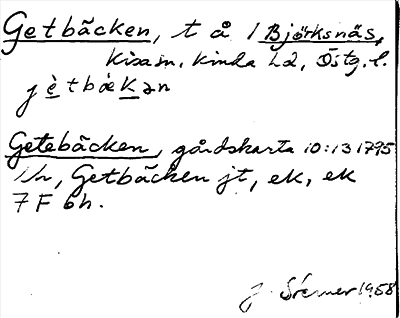 Getbäcken, t å / Björksnäs,
Kisa sn, Kinda hd, Östg. l.
jètbækən
Getebäcken, gårdskarta 10:13 1795
1h, Getbäcken jt, ek, ek
7 F 6h.
1958